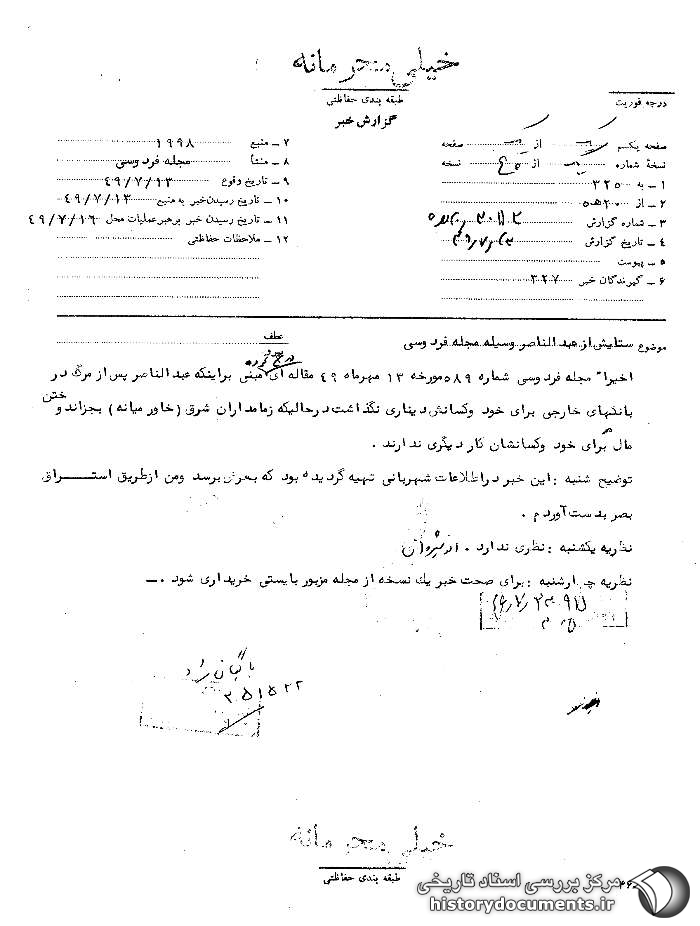 خیلی محرمانه
طبقه بندی حفاظتی
درجه فوریت
گزارش خبر
صفحه یکم از صفحه
نسخهٔ شماره از نسخه
۱ ـ به ۳۲۵
۲ ـ از ۲۰ﻫ۵
۳ ـ شماره گزارش
۴ ـ تاریخ گزارش
۵ ـ پیوست
۶ ـ گیرندگان خبر ۳۲۷
۷ ـ منبع ۱۹۹۸
۸ ـ منشأ مجله فردوسی
۹ ـ تاریخ وقوع ۴۹/۷/۱۳
۱۰ ـ تاریخ رسیدن خبر به منبع ۴۹/۷/۱۳
۱۱ ـ تاریخ رسیدن خبر برهبر عملیات محل ۴۹/۷/۱۶
۱۲ ـ ملاحظات حفاظتی
عطف
موضوع ستایش از عبدالناصر وسیله مجله فردوسی
اخیرا" مجله فردوسی شماره ۵۸۹ مورخه ۱۳ مهرماه ۴۹ مقاله ای درج نموده مبنی براینکه عبدالناصر پس از مرگ در
بانکهای خارجی برای خود وکسانش دیناری نگذاشت درحالیکه زمامداران شرق (خاورمیانه) بجز اندوختن
مال برای خود وکسانشان کار دیگری ندارند .
توضیح شنبه : این خبر دراطلاعات شهربانی تهیه گردیده بود که بعرض برسد ومن ازطریق استراق
بصر بدست آوردم .
نظریه یکشنبه : نظری ندارد . انوشیروان
نظریه چهارشنبه : برای صحت خبر یک نسخه از مجله مزبور بایستی خریداری شود . ـ
بایگانی شود
۳۵۱۵۲۲
خیلی محرمانه
طبقه بندی حفاظتی
مرکز بررسی اسناد تاریخی
historydocuments.ir